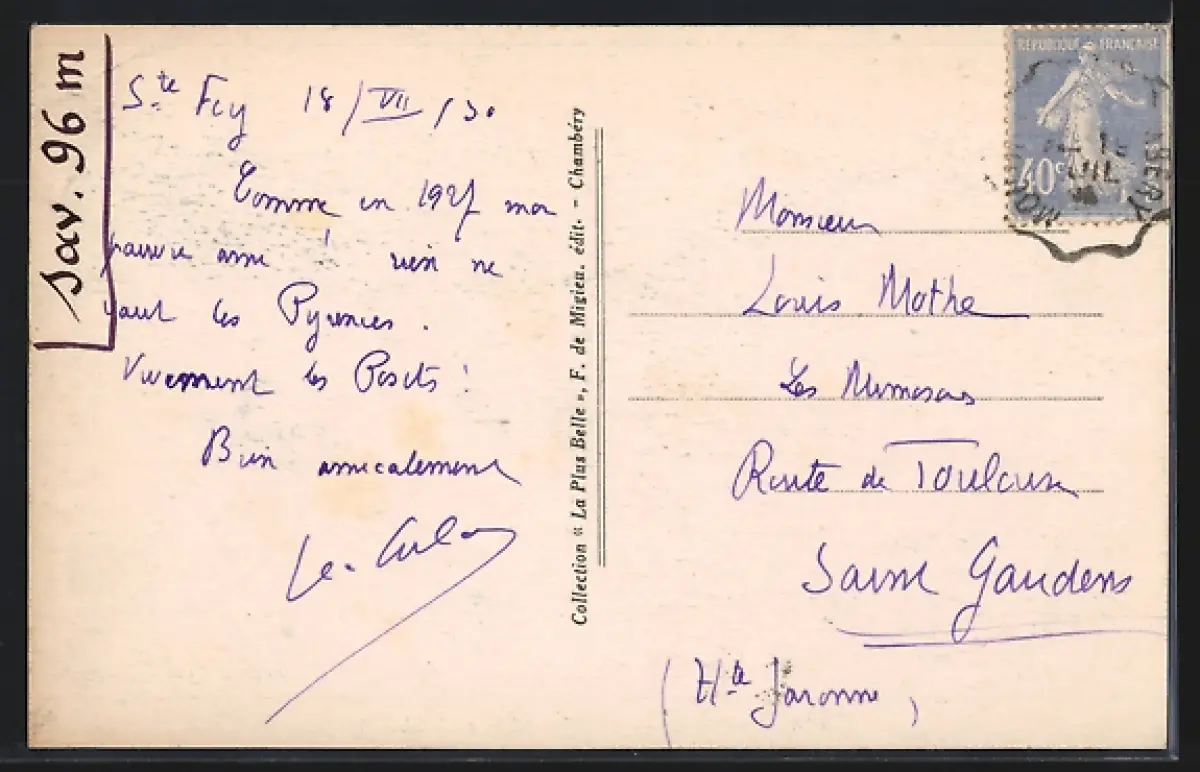 Sav. 96 m
Ste Foy 18/VII/30
Comme en 1927 mon
pauvre ami ! rien ne
vaut les Pyrénées.
Vivement les Posets !
Bien amicalement
Collection « La Plus Belle », F. de Migieu, édit. - Chambéry
RÉPUBLIQUE FRANÇAISE
40c
Monsieur
Louis Mothe
Les Mimosas
Route de Toulouse
Saint Gaudens
(Hte Garonne)